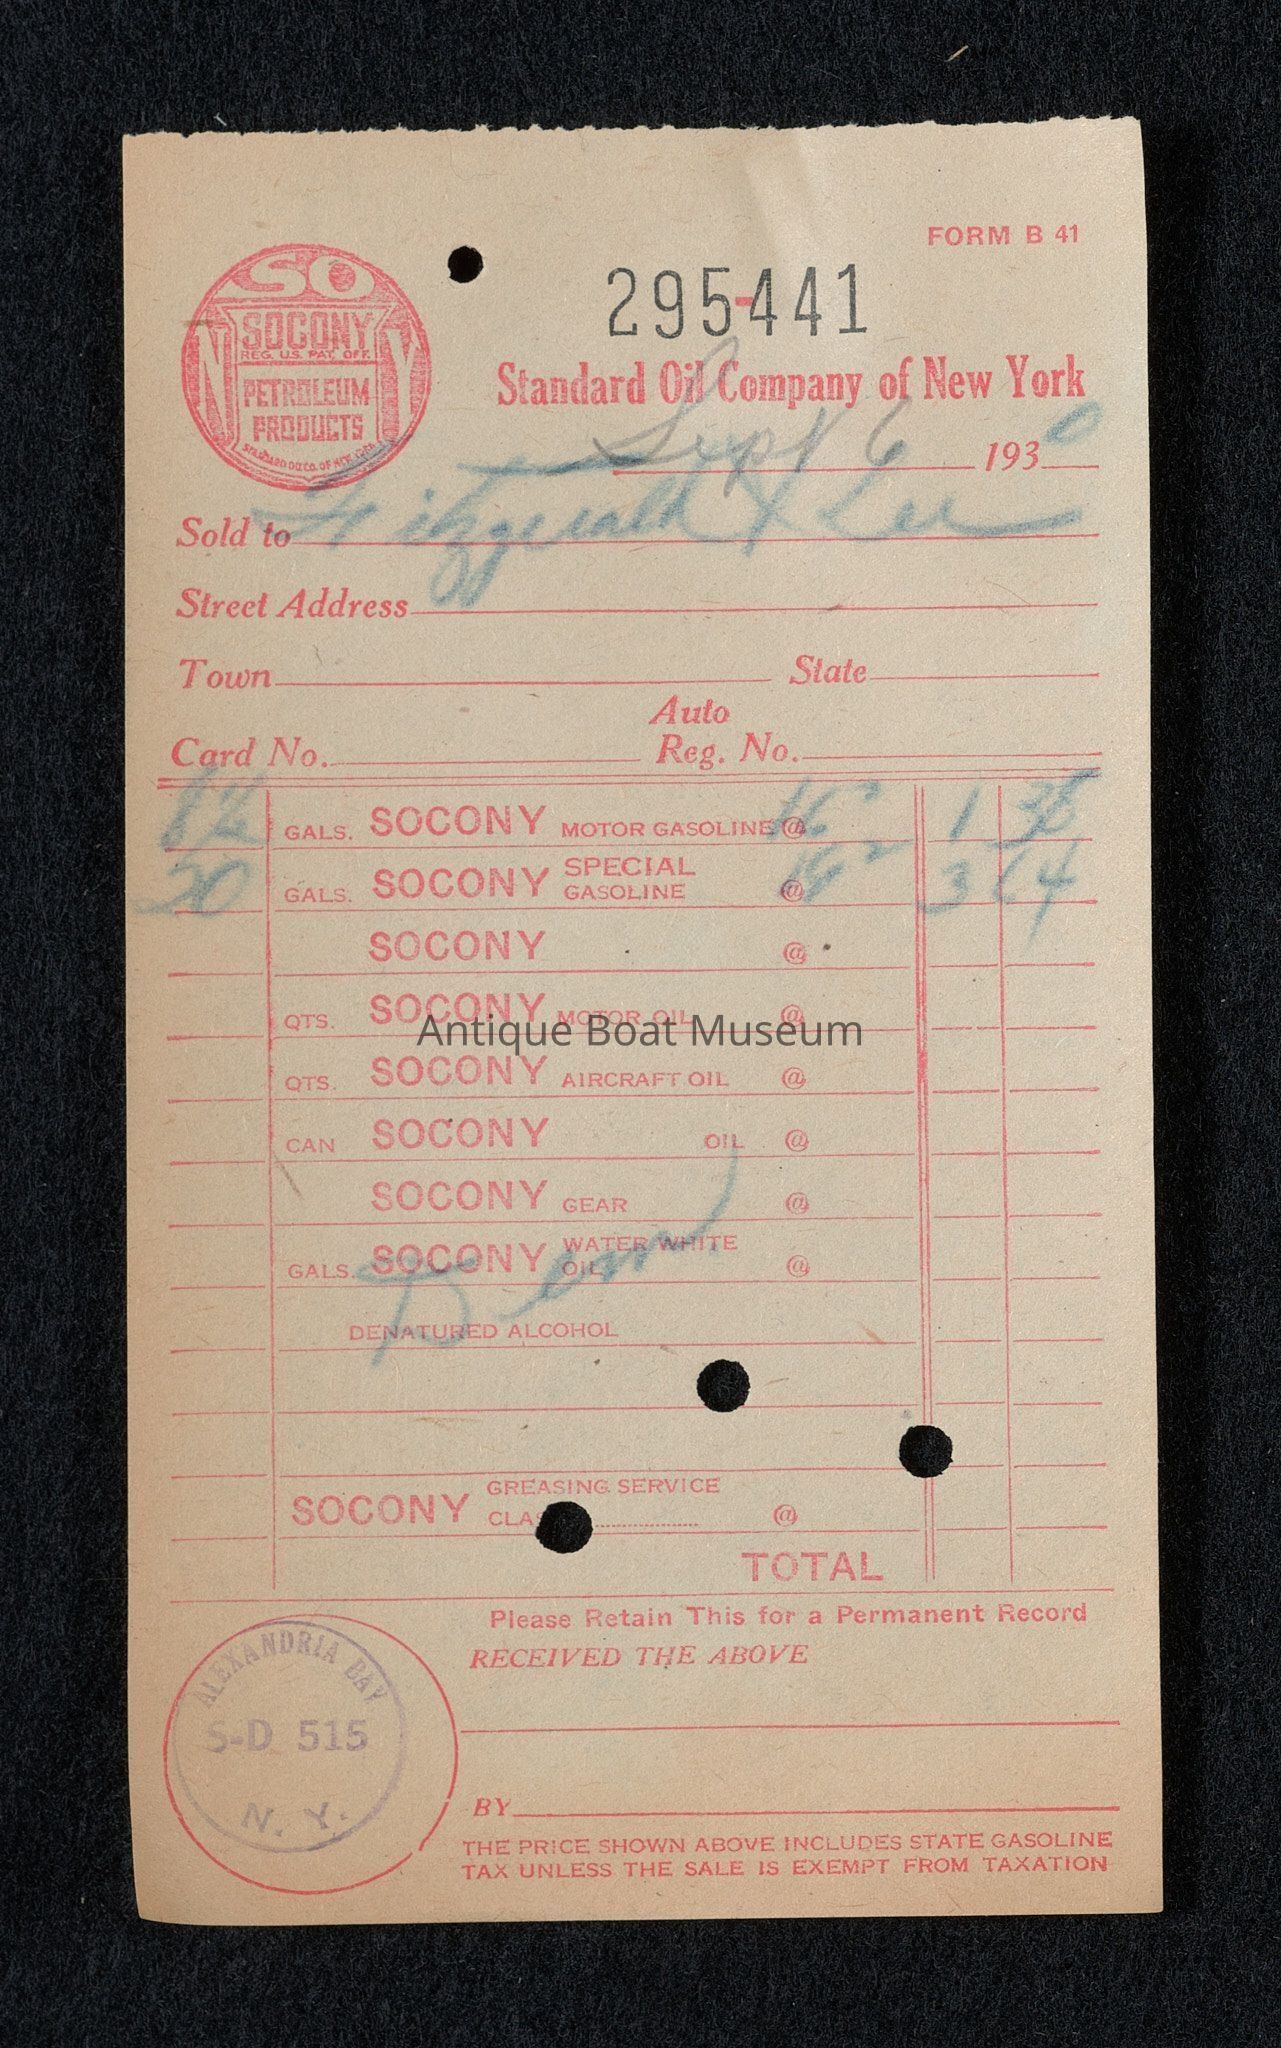 FORM B 41
SO
SOCONY
REG. U.S. PAT. OFF.
N Y
PETROLEUM
PRODUCTS
STANDARD OIL CO. OF NEW YORK
295-441
Standard Oil Company of New York
Sept 6 1930
Sold to Fitzgerald & Lee
Street Address
Town State
Card No. Auto Reg. No.
GALS. SOCONY MOTOR GASOLINE @ 1 38
20 GALS. SOCONY SPECIAL GASOLINE @ 3 64
SOCONY @
QTS. SOCONY MOTOR OIL @
QTS. SOCONY AIRCRAFT OIL @
CAN SOCONY OIL @
SOCONY GEAR @
GALS. SOCONY WATER WHITE OIL @
DENATURED ALCOHOL
SOCONY GREASING SERVICE
@
TOTAL
Please Retain This for a Permanent Record
RECEIVED THE ABOVE
ALEXANDRIA BAY
S-D 515
N. Y.
BY
THE PRICE SHOWN ABOVE INCLUDES STATE GASOLINE
TAX UNLESS THE SALE IS EXEMPT FROM TAXATION
Antique Boat Museum